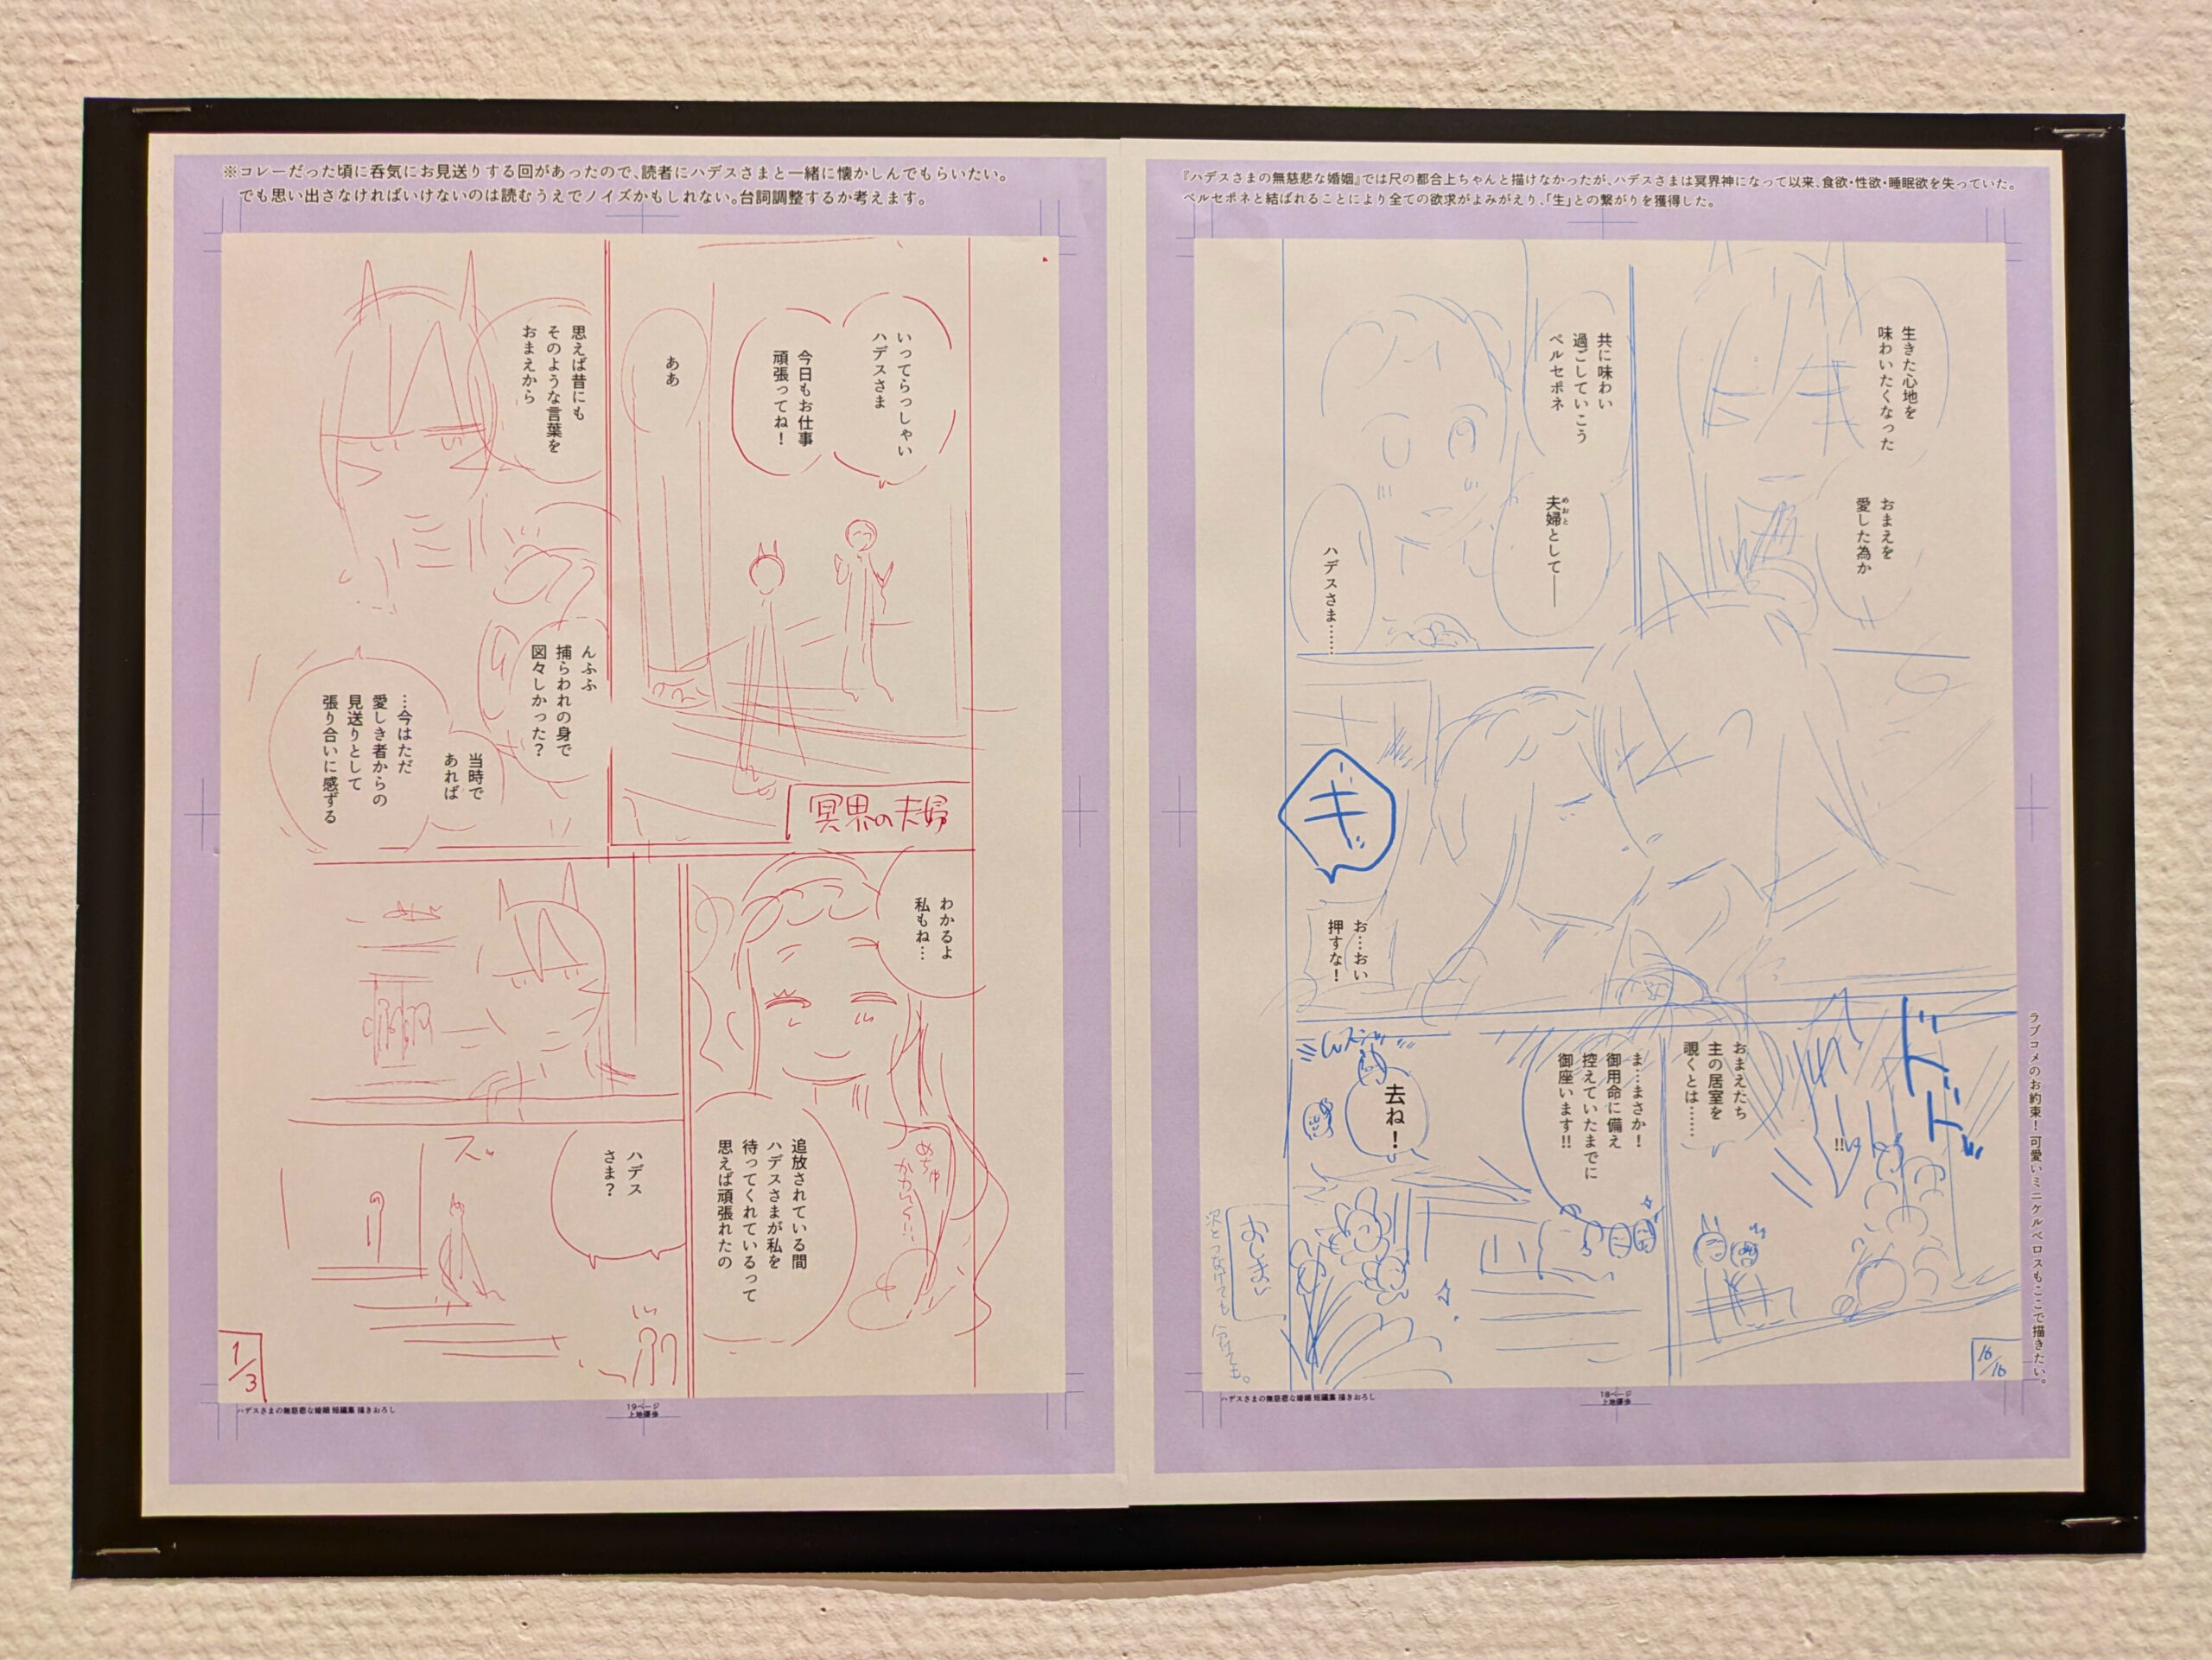 『ハデスさまの無慈悲な婚姻』では尺の都合上ちゃんと描けなかったが、ハデスさまは冥界神になって以来、食欲・性欲・睡眠欲を失っていた。
ペルセポネと結ばれることにより全ての欲求がよみがえり、「生」との繋がりを獲得した。
生きた心地を
味わいたくなった
おまえを
愛した為か
共に味わい
過ごしていこう
ペルセポネ
夫婦として――
めおと
ハデスさま……
ギ
お…おい
押すな!
ドドド
!!
おまえたち
主の居室を
覗くとは……
ま…まさか!
御用命に備え
控えていたまでに
御座います!!
去ね!
おしまい
ラブコメのお約束!可愛いミニケルベロスもここで描きたい。
16/16
ハデスさまの無慈悲な婚姻 短編集 描きおろし
18ページ
上地優歩
※コレーだった頃に呑気にお見送りする回があったので、読者にハデスさまと一緒に懐かしんでもらいたい。
でも思い出さなければいけないのは読むうえでノイズかもしれない。台詞調整するか考えます。
いってらっしゃい
ハデスさま
今日もお仕事
頑張ってね!
ああ
冥界の夫婦
思えば昔にも
そのような言葉を
おまえから
んふふ
捕らわれの身で
図々しかった?
当時で
あれば
…今はただ
愛しき者からの
見送りとして
張り合いに感ずる
わかるよ
私もね…
追放されている間
ハデスさまが私を
待ってくれているって
思えば頑張れたの
めちゃ
かかんく!!
ハデス
さま?
ズッ
1/3
ハデスさまの無慈悲な婚姻 短編集 描きおろし
19ページ
上地優歩